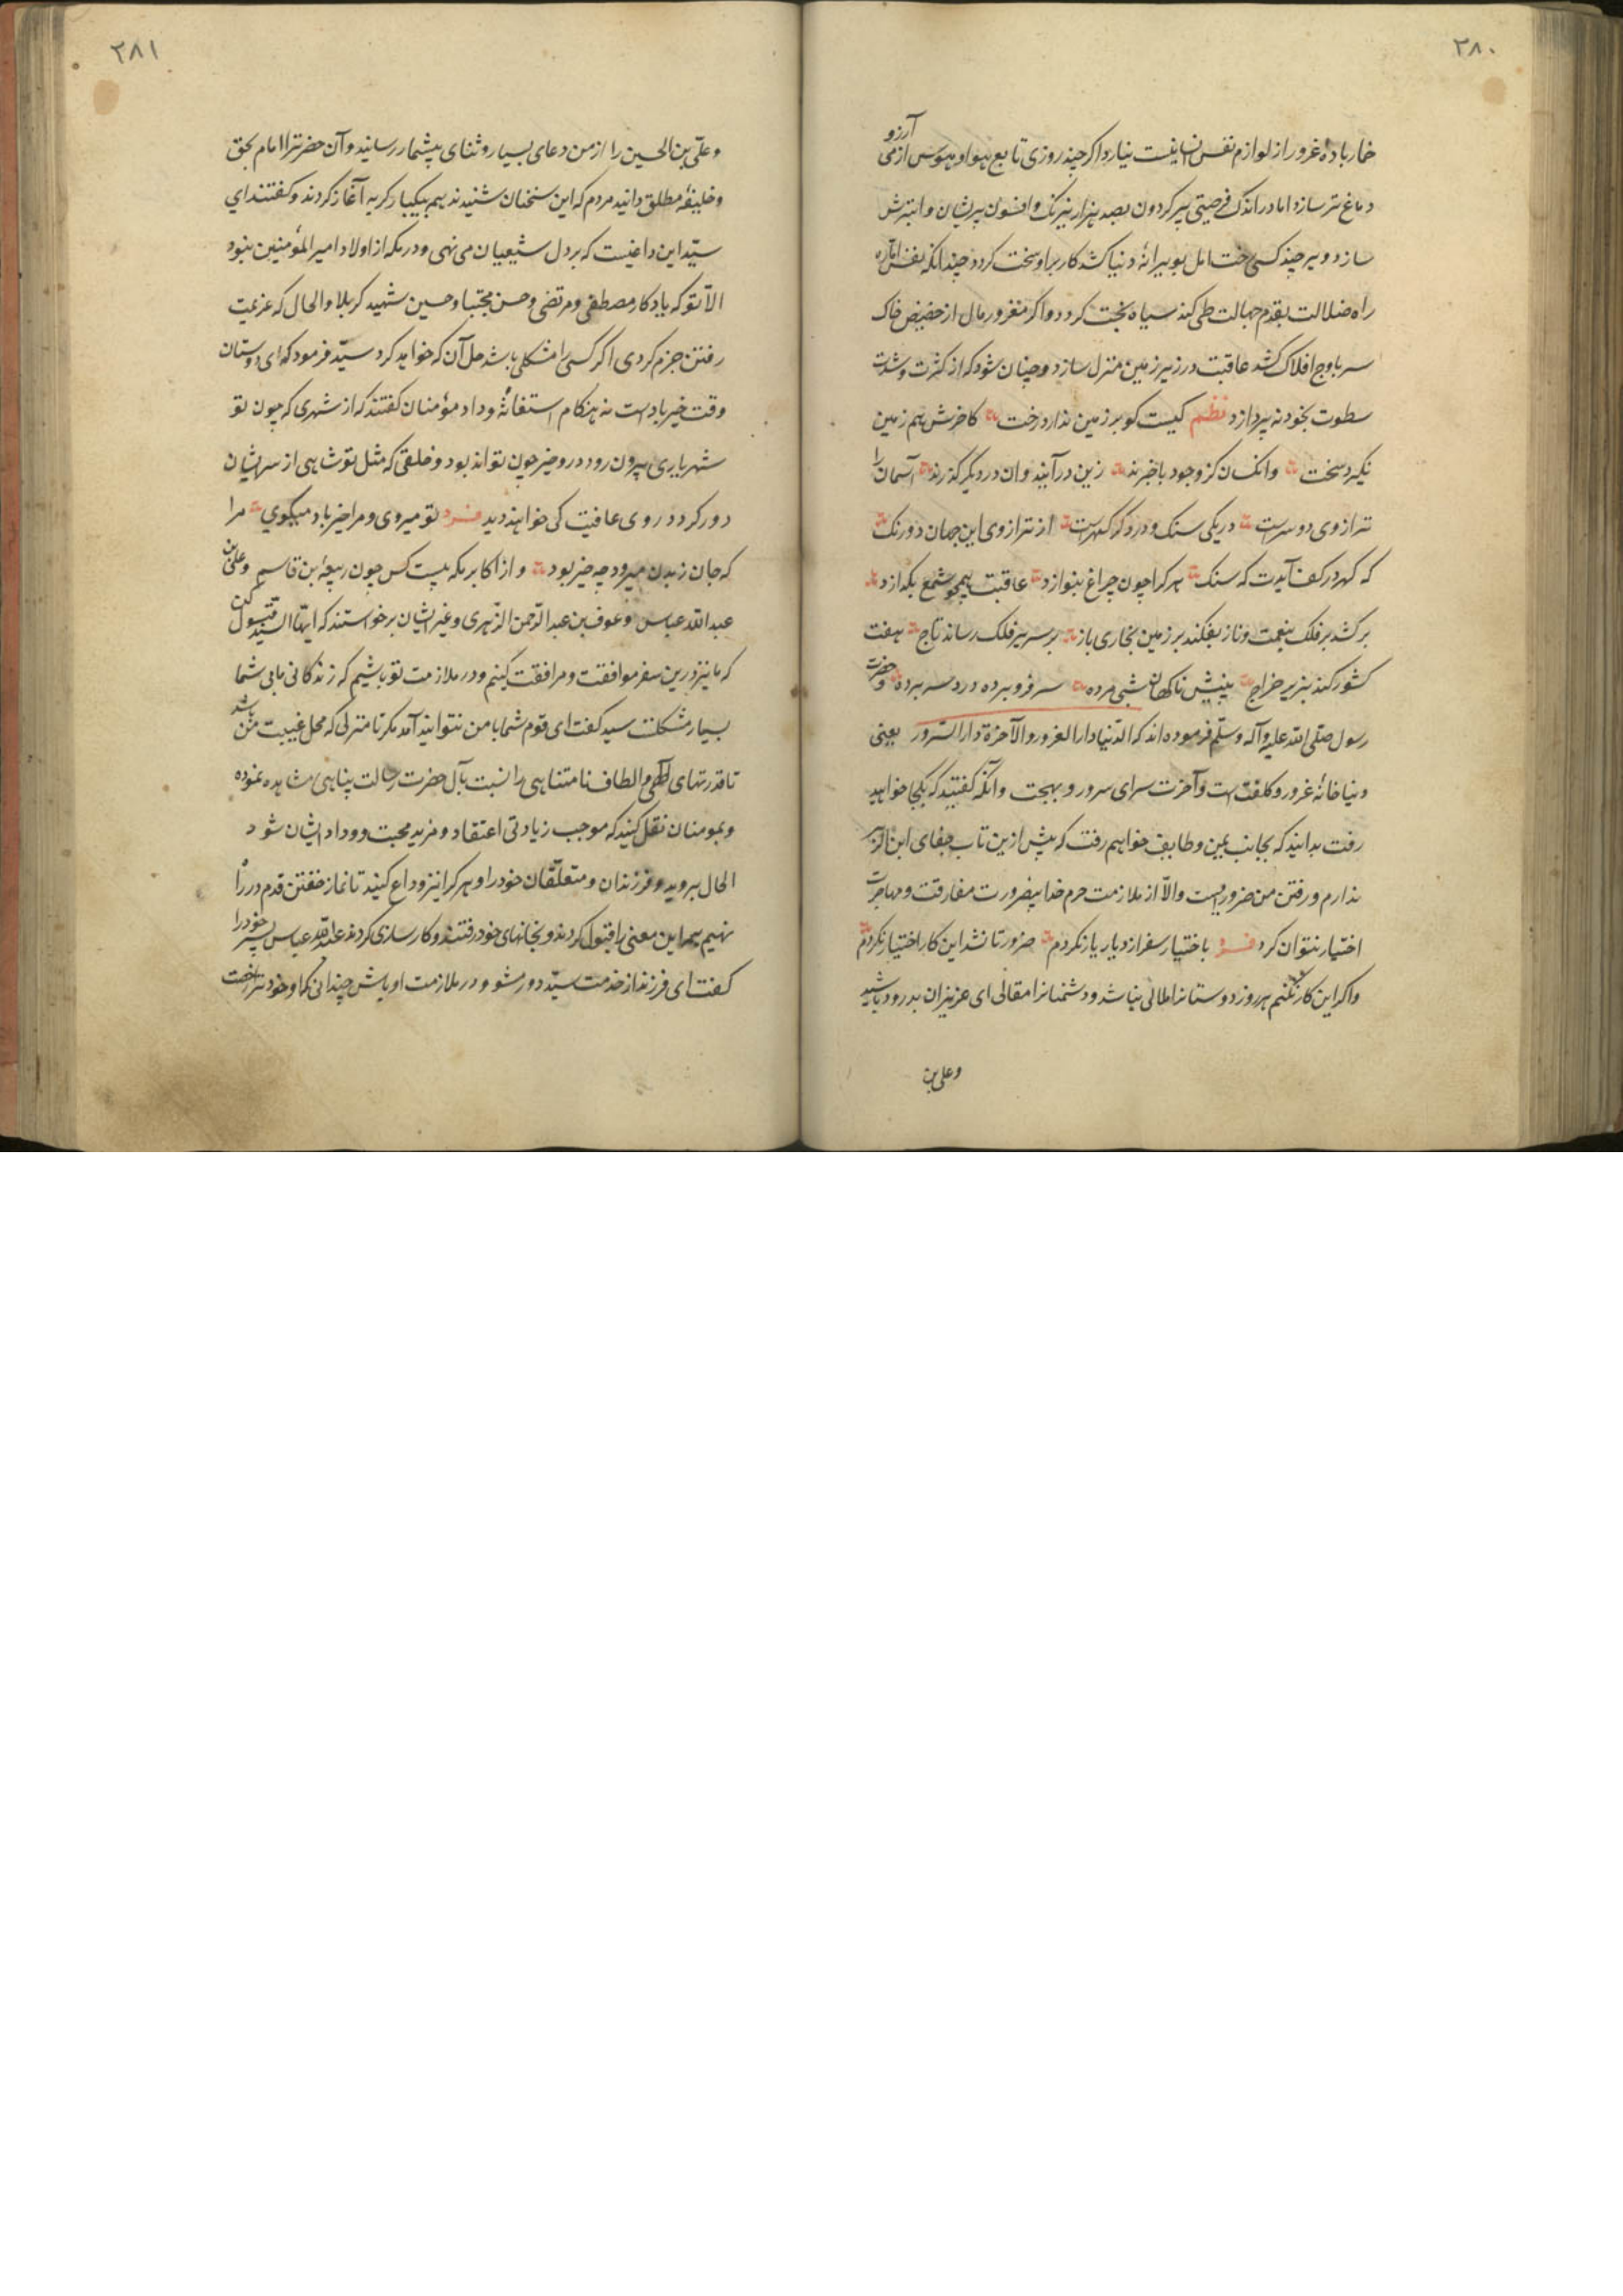 ۲۸۰
خار باده غرور از لوازم نفس انسانیست نیارد اکر چند روزی تابع هوا و هوس از می آرزو
دماغ تر سازد اما در اندک فرصتی پیر کردون بصد هزار نیرنک و افسون پریشان و ابترش
سازد و هر چند کسی رخت امل بویرانهٔ دنیا کشد کار بر او سخت کردد چندانکه نفس اماره
راه ضلالت بقدم جهالت طی کند سیاه بخت کردد و اکر مغرور مال از حضیض خاک
سر باوج افلاک کشد عاقبت در زیر زمین منزل سازد و چنان شود که از کثرت و شدت
سطوت بخود نه پردازد نظم کیست کو بر زمین ندارد رخت کاخرش هم زمین
نکیرد سخت وانکسان کز وجود باخبرند زین درآیند وان در دیکر کذرند آسمان را
ترازوی دو سرست در یکی سنک و در دکر کهرست از ترازوی این جهان دو رنک
که کهر در کف آیدت که سنک هر کرا چون چراغ بنوازد عاقبت همچو شمع بکدازد
برکشد بر فلک بنعمت و ناز بفکند بر زمین بخاری باز بر سریر فلک رساند تاج هفت
کشور کند بزیر خراج بینیش ناکهان شبی مرده سر فرو برده درد سر برده و حضرت
رسول صلی الله علیه وآله وسلّم فرموده اند که الدّنیا دار الغرور والآخرة دار السّرور یعنی
دنیا خانهٔ غرور و کلفتست و آخرت سرای سرور و بهجت وانکه کفتید که بکجا خواهید
رفت بدانید که بجانب یمن و طایف خواهم رفت که بیش ازین تاب جفای ابن الزبیر
ندارم و رفتن من ضروریست والّا از ملازمت حرم خدا بیضرورت مفارقت و مهاجرت
اختیار نتوان کرد فرد باختیار سفر از دیار یار نکردم ضرور تا نشد این کار اختیار نکردم
واکر این کار نکنم هر روز دوستانرا ملالی باشد و دشمنانرا مقالی ای عزیزان بدرود باشید
وعلی بن
۲۸۱
وعلّی بن الحسین را از من دعای بسیار و ثنای بیشمار رسانید و آن حضرترا امام بحق
و خلیفهٔ مطلق دانید مردم که این سخنان شنیدند همه بیکبار کریه آغاز کردند و کفتند ای
سیّد این داغیست که بر دل شیعیان می نهی و در مکه از اولاد امیر المؤمنین نبود
الّا تو که یادکار مصطفی و مرتضی و حسن مجتبا و حسین شهید کربلا والحال که عزیمت
رفتن جزم کردی اکر کسی را مشکلی باشد حل آن که خواهد کرد سیّد فرمود که ای دوستان
وقت خیرباد است نه هنکام استغاثه و داد مؤمنان کفتند که از شهری که چون تو
شهریاری بیرون رود درو خیر چون تواند بود و خلقی که مثل تو شاهی از سر ایشان
دور کردد روی عافیت کی خواهند دید فرد تو میروی و مرا خیرباد میکوی مرا
که جان ز بدن میرود چه خیر بود و از اکابر مکه بیست کس چون ربیعه ابن قاسم و علی بن
عبدالله عباس و عوف بن عبدالرّحمن الزّهری و غیر ایشان برخواستند که ایها السّید قبول کن
که ما نیز درین سفر موافقت و مرافقت کنیم و در ملازمت تو باشیم که زندکانی ما بی شما
بسیار مشکلت سید کفت ای قوم شما با من نتوانید آمد مکر تا منزلی که محل غیبت من باشد
تا قدرتهای الهی و الطاف نامتناهی را نسبت بآل حضرت رسالت پناهی مشاهده نموده
و بمومنان نقل کنید که موجب زیادتی اعتقاد و مزید محبت و وداد ایشان شود
الحال بروید و فرزندان و متعلّقان خود را و هر کرا نیز وداع کنید تا نماز خفتن قدم در راه
نهیم همه این معنی را قبول کردند و بخانهای خود رفتند و کارسازی کردند عبدالله عباس پسر خود را
کفت ای فرزند از خدمت سیّد دور مشو و در ملازمت او باش چندانی که او خود ترا رخصت